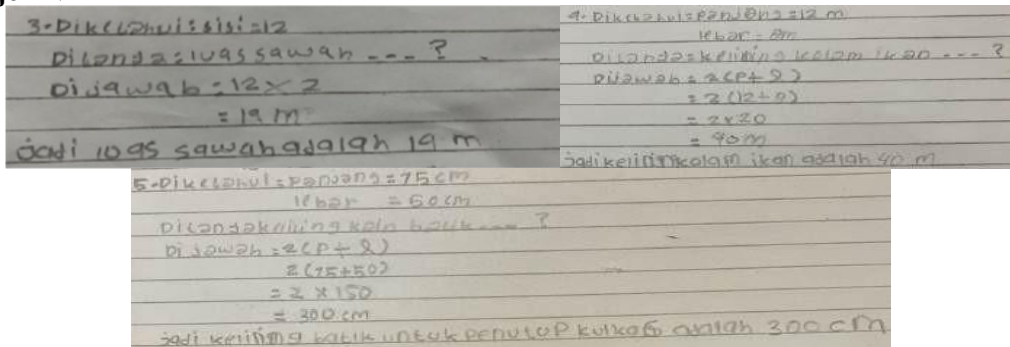 3. Diketahui : sisi = 12
Ditanya : luas sawah --- ?
Dijawab = 12 × 2
= 19 m
Jadi luas sawah adalah 19 m
4. Diketahui = panjang = 12 m
lebar = 8m
Ditanya = keliling kolam ikan --- ?
Dijawab = 2(P + l)
= 2(12+8)
= 2×20
= 40m
Jadi keliling kolam ikan adalah 40 m
5. Diketahui = Panjang = 75 cm
lebar = 50 cm
Ditanya keliling kain batik --- ?
Dijawab = 2(P + l)
2(75+50)
= 2 × 150
= 300 cm
Jadi keliling batik untuk penutup kulkas adalah 300 cm